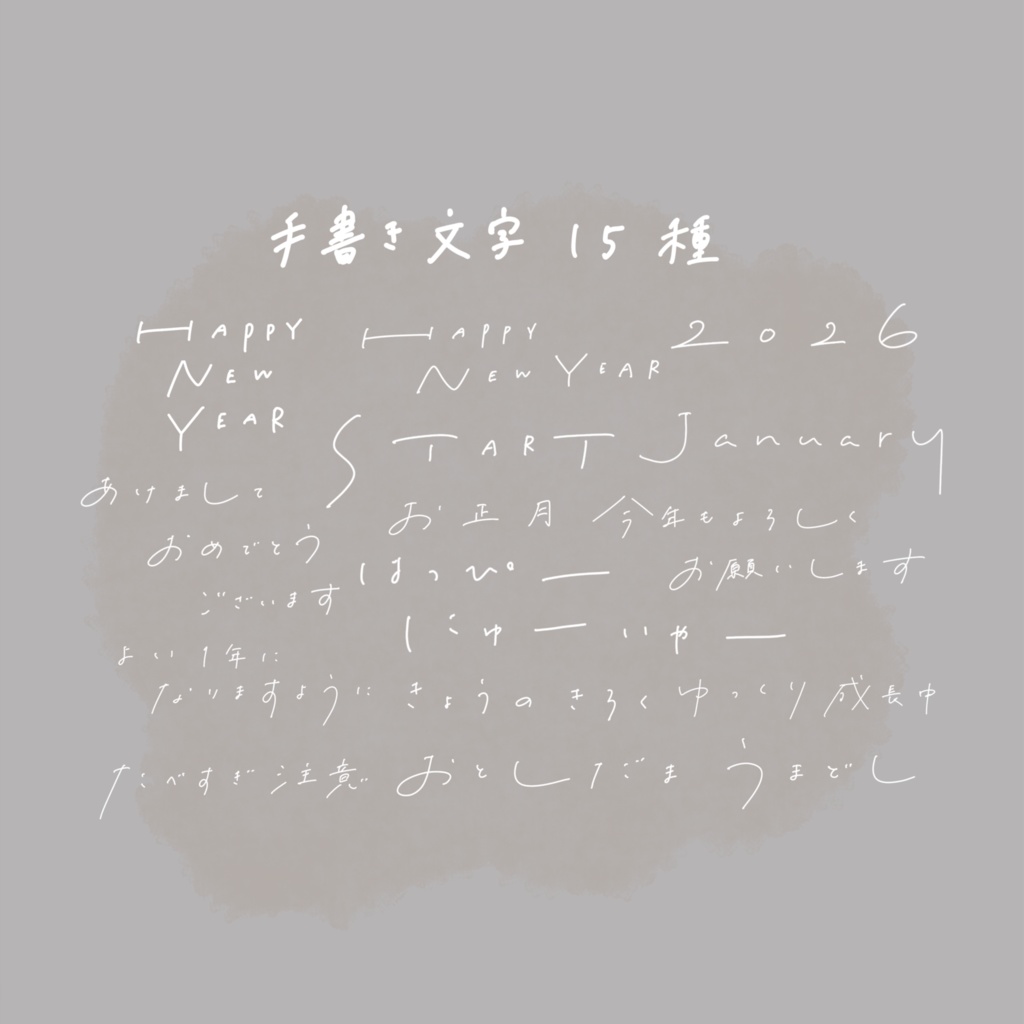 手書き文字 15種
HAPPY
NEW
YEAR
HAPPY
NEW YEAR
2026
START
January
あけまして
おめでとう
ございます
お正月
今年もよろしく
お願いします
はっぴー
にゅーいやー
よい1年に
なりますように
きょうのきろく
ゆっくり成長中
たべすぎ注意
おとしだま
うまどし